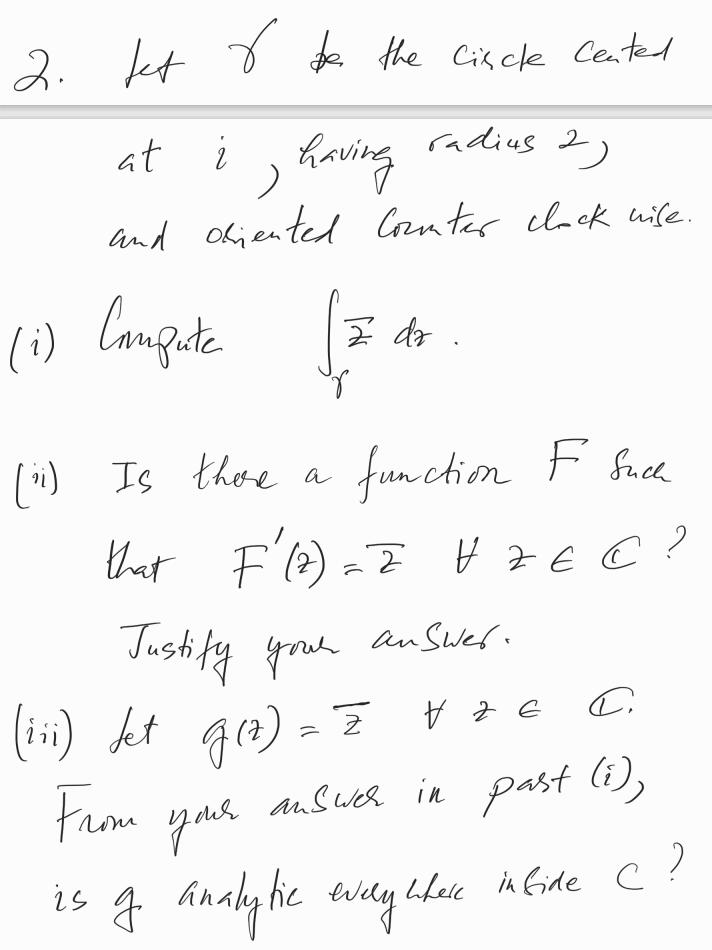 2. Let γ be the circle cented
at i, having radius 2,
and oriented Counter clock wise.
(i) Compute ∫_γ z̅ dz.
(ii) Is there a function F such
that F'(z) = z̅ ∀ z ∈ ℂ?
Justify your answer.
(iii) Let g(z) = z̅ ∀ z ∈ ℂ.
From your answer in part (i),
is g analytic everywhere inside C?